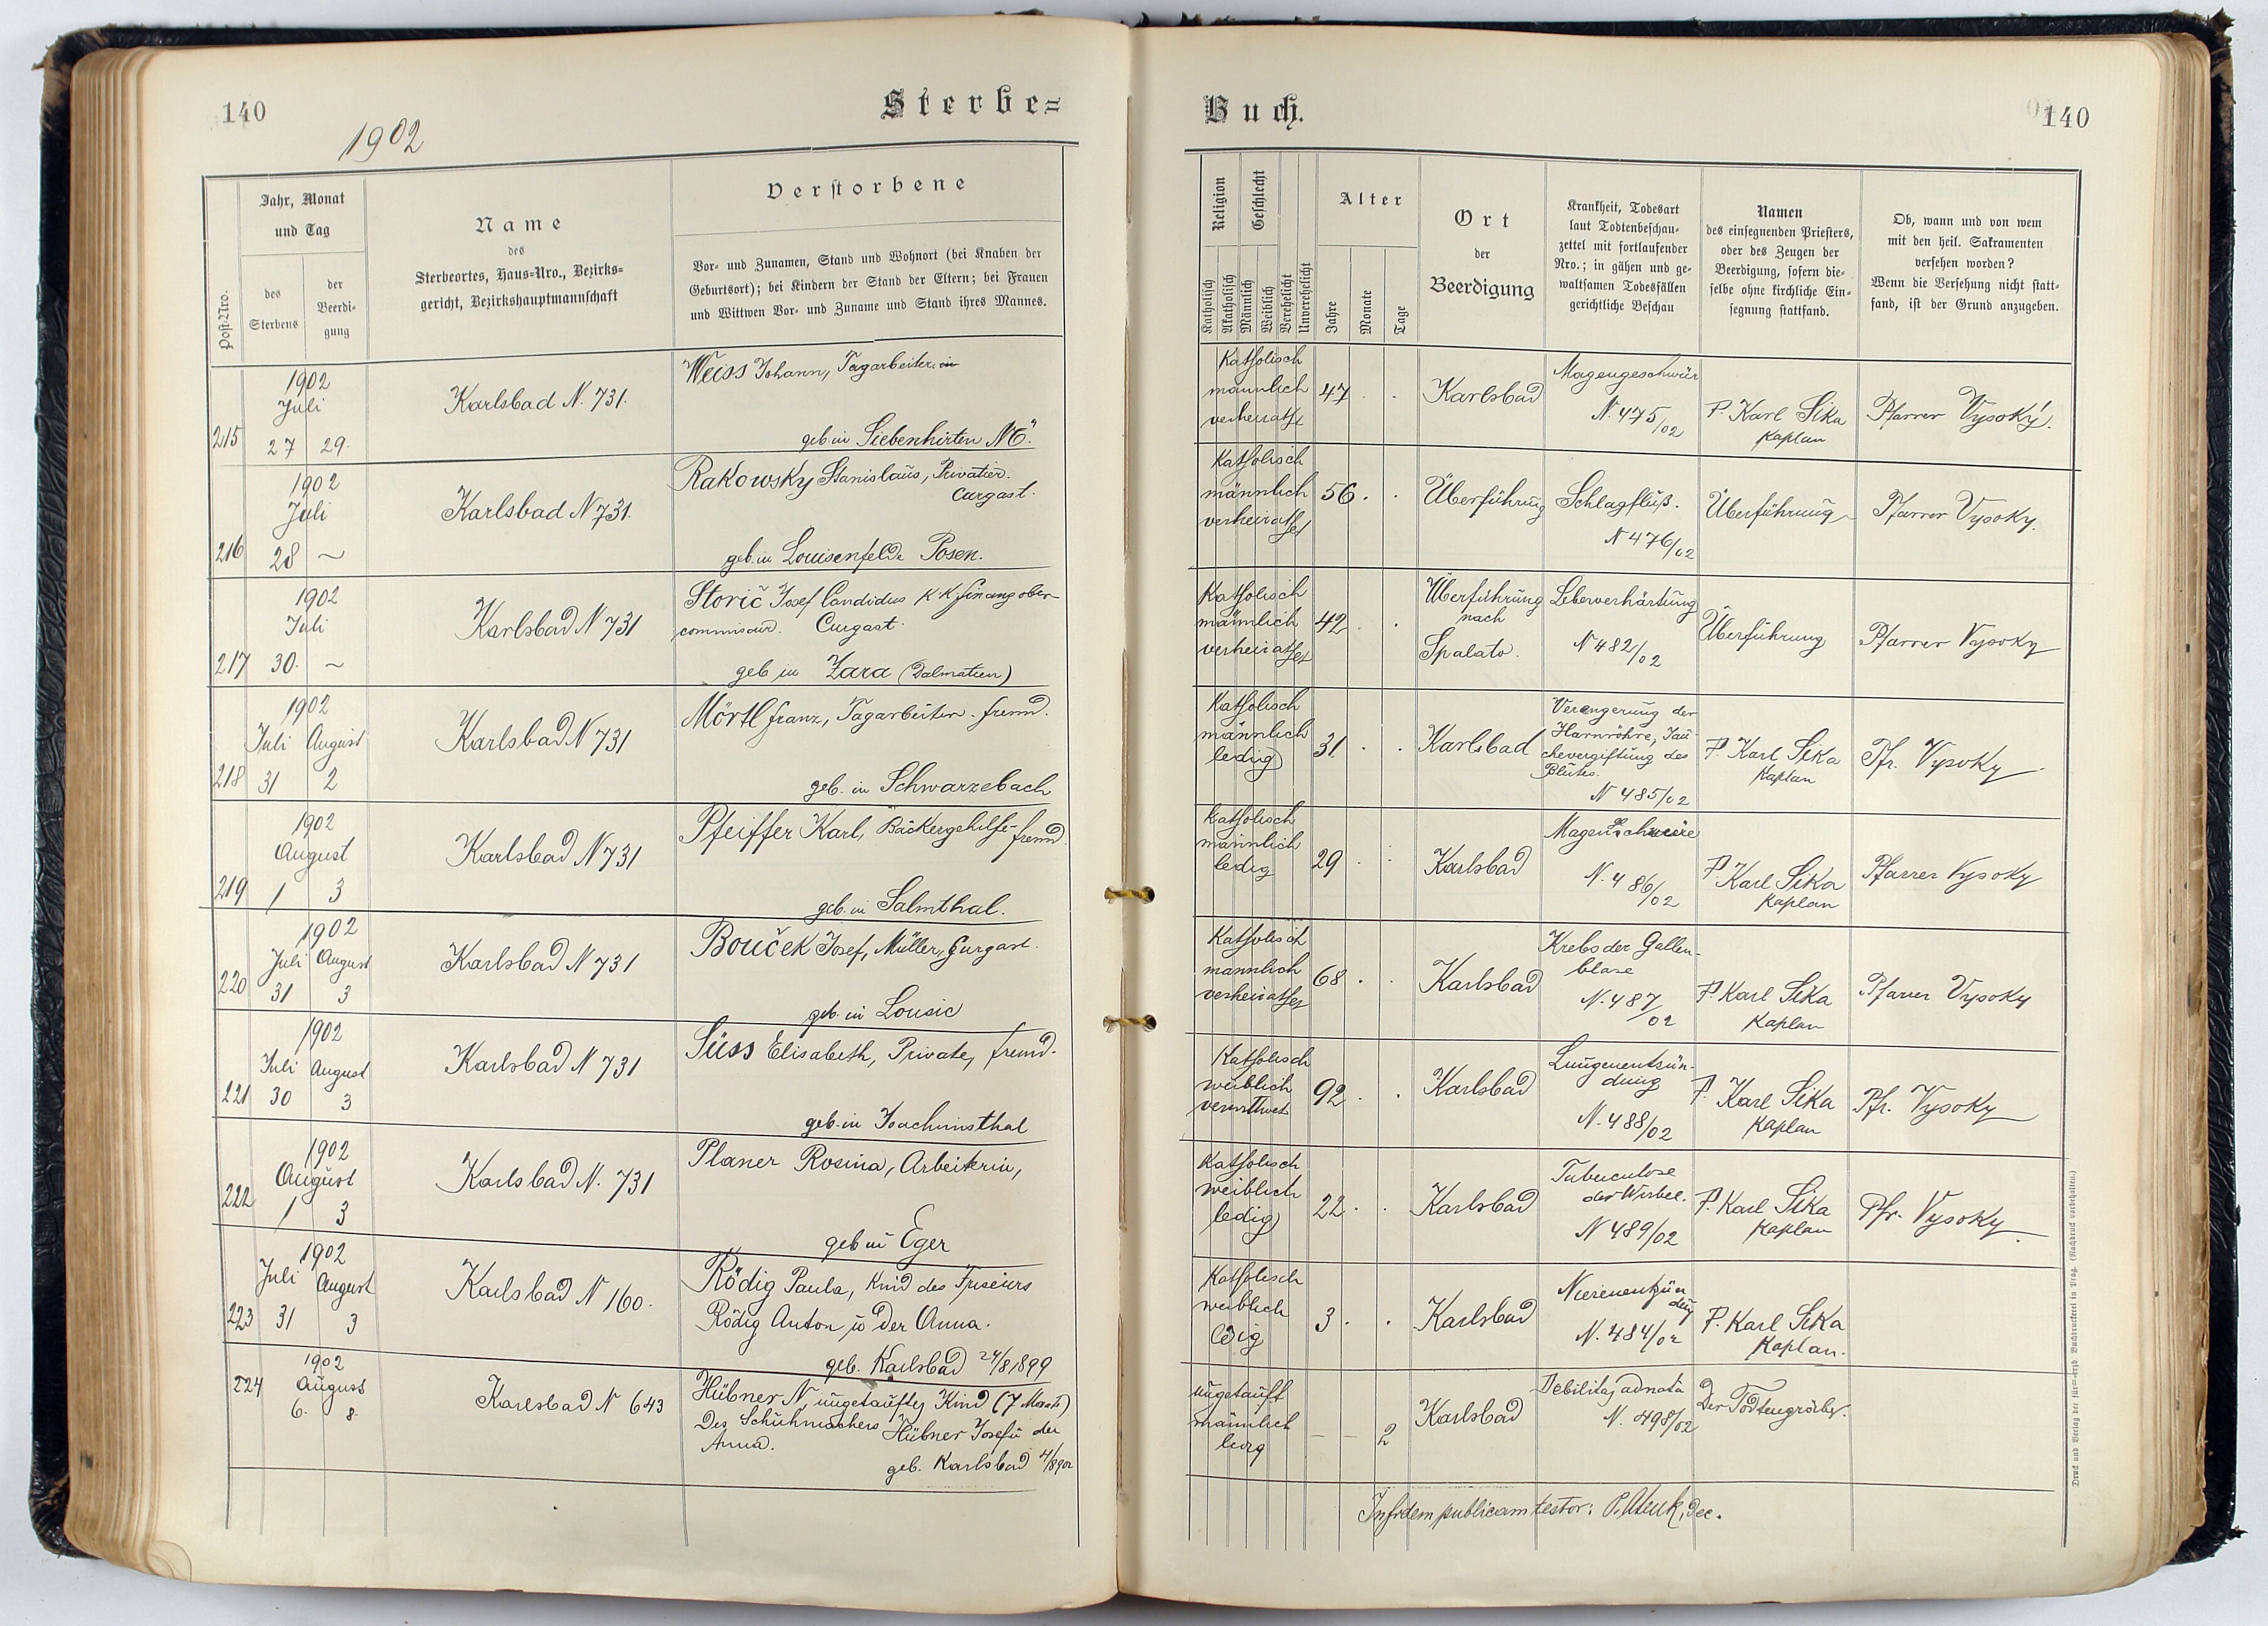 140
1902
Sterbe=
Post-Nro.
Jahr, Monat
und Tag
des
Sterbens
der
Beerdi-
gung
Name
des
Sterbeortes, Haus-Nro., Bezirks-
gericht, Bezirkshauptmannschaft
Verstorbene
Vor- und Zunamen, Stand und Wohnort (bei Knaben der
Geburtsort); bei Kindern der Stand der Eltern; bei Frauen
und Wittwen Vor- und Zuname und Stand ihres Mannes.
215
1902
Juli
27 29.
Karlsbad N. 731.
Weiss Johann, Tagarbeiter. in
geb. in Siebenhirten NÖ.
216
1902
Juli
28 ~
Karlsbad N 731.
Rakowsky Stanislaus, Privatier.
Curgast.
geb. in Louisenfelde Posen.
217
1902
Juli
30. ~
Karlsbad N 731
Storič Josef Candidus K K finanzober-
commissär. Curgast.
geb in Zara (Dalmatien)
218
1902
Juli August
31 2
Karlsbad N 731
Mörtl Franz, Tagarbeiter. fremd.
geb. in Schwarzebach
219
1902
August
1 3
Karlsbad N 731
Pfeiffer Karl, Bäckergehilfe- fremd.
geb. in Salmthal.
220
1902
Juli August
31 3
Karlsbad N 731
Bouček Josef, Müller, Curgast.
geb. in Lousic
221
1902
Juli August
30 3
Karlsbad N 731
Süss Elisabeth, Private, fremd.
geb. in Joachimsthal
222
1902
August
1 3
Karlsbad N. 731
Planer Rosina, Arbeiterin,
geb in Eger
223
1902
Juli August
31 3
Karlsbad N 160.
Rödig Paula, Kind des Friseurs
Rödig Anton u der Anna.
geb. Karlsbad 24/8 1899
224
1902
August
6. 8.
Karlsbad N 643
Hübner N, ungetauftes Kind (7 Monat)
des Schuhmachers Hübner Josef u der
Anna.
geb. Karlsbad 4/8 902
Buch.
140
Religion
Katholisch
Akatholisch
Geschlecht
Männlich
Weiblich
Verehelicht
Unverehelicht
Alter
Jahre
Monate
Tage
Ort
der
Beerdigung
Krankheit, Todesart
laut Todtenbeschau-
zettel mit fortlaufender
Nro.; in gähen und ge-
waltsamen Todesfällen
gerichtliche Beschau
Namen
des einsegnenden Priesters,
oder des Zeugen der
Beerdigung, sofern die-
selbe ohne kirchliche Ein-
segnung stattfand.
Ob, wann und von wem
mit den heil. Sakramenten
versehen worden?
Wenn die Versehung nicht statt-
fand, ist der Grund anzugeben.
Katholisch
männlich
verheirathet
47
Karlsbad
Magengeschwür
N. 475/02
P. Karl Sika
Kaplan
Pfarrer Vysoký.
Katholisch
männlich
verheirathet
56.
Überführung
Schlagfluß.
N 476/02
Überführung
Pfarrer Vysoky.
Katholisch
männlich
verheirathet
42
Überführung
nach
Spalato.
Leberverhärtung
N 482/02
Überführung
Pfarrer Vysoky
Katholisch
männlich
ledig
31.
Karlsbad
Verengerung der
Harnröhre, Jau-
chevergiftung des
Blutes.
N 485/02
P. Karl Sika
Kaplan
Pfr. Vysoky
Katholisch
männlich
ledig
29
Karlsbad
N. 486/02
P. Karl Sika
Kaplan
Pfarrer Vysoky
Katholisch
männlich
verheirathet
68
Karlsbad
Krebs der Gallen-
blase
N. 487/02
P. Karl Sika
Kaplan
Pfarrer Vysoky
Katholisch
weiblich
verwittwet
92
Karlsbad
Lungenentzün-
dung
N. 488/02
P. Karl Sika
Kaplan
Pfr. Vysoky
Katholisch
weiblich
ledig
22
Karlsbad
Tuberculose
der Wirbel.
N 489/02
P. Karl Sika
Kaplan
Pfr. Vysoky
Katholisch
weiblich
ledig
3
Karlsbad
Nierenentzün
dung
N. 484/02
P. Karl Sika
Kaplan.
ungetauft
männlich
ledig
– – 2
Karlsbad
Debilitas adnata
N. 498/02
Der Todtengräber.
In fidem publicam testor: Dec.
Druck und Verlag der fürsterzb. Buchdruckerei in Prag. (Nachdruck vorbehalten.)